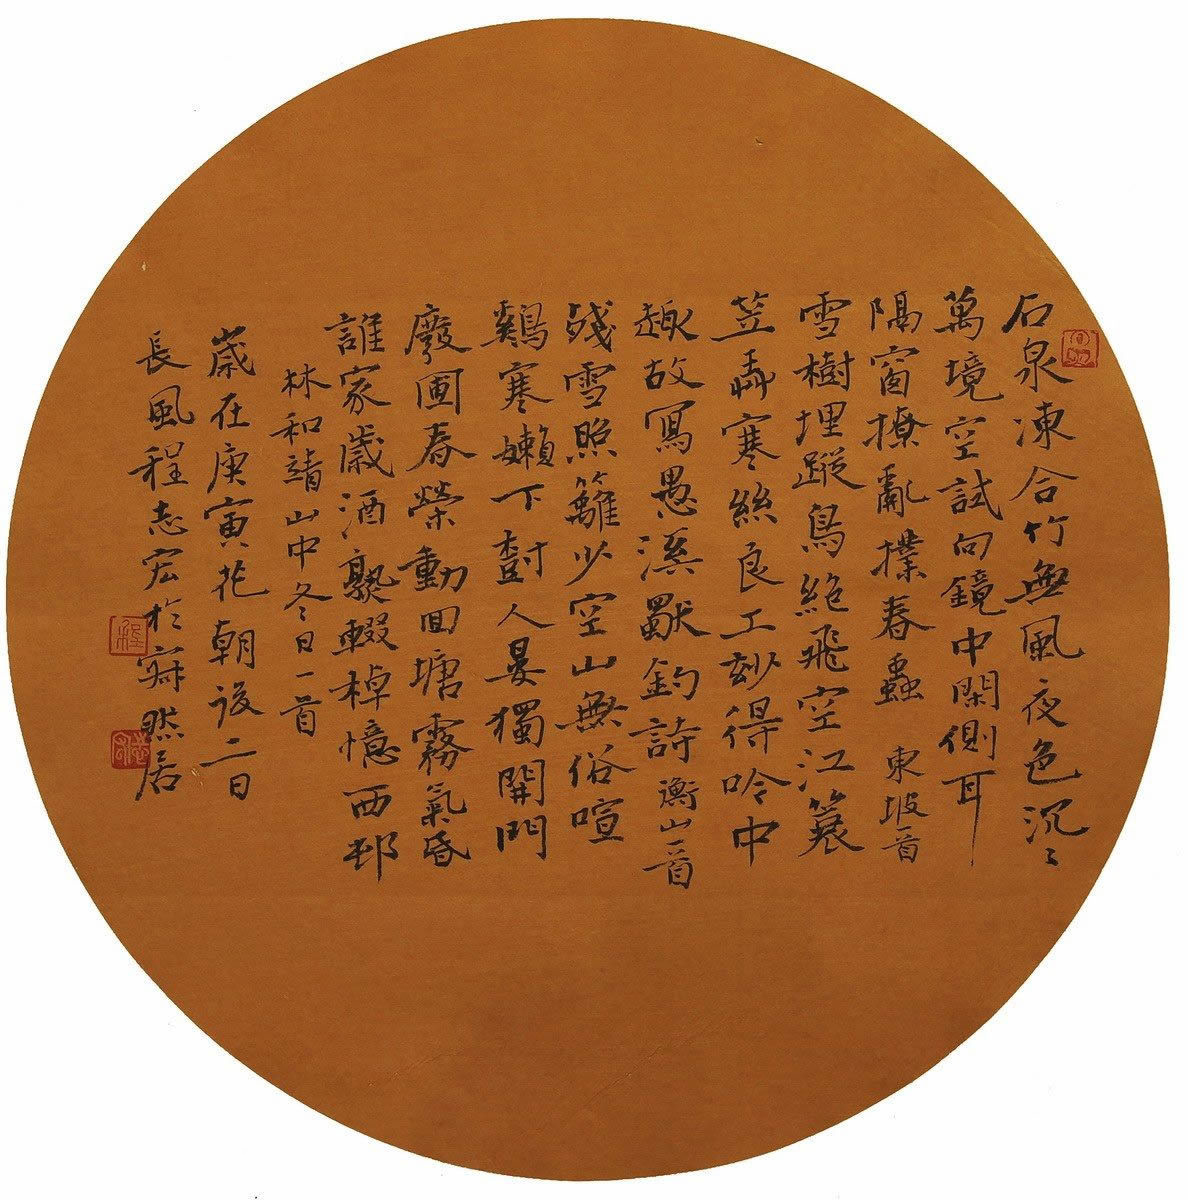 石泉凍合竹無風夜色沉〻
萬境空試向鏡中閑側耳
隔窗撩亂撲春蟲 東坡一首
雪樹埋蹤鳥絕飛空江蓑
笠寒絲良工妙得吟中
趣故寫愚溪釣詩 衡山一首
殘雪照籬少空山無俗喧
鷄寒嬾下樹人晏獨開門
廢圃春榮動回塘霧氣昏
誰家歲酒熟輟棹憶西邨
林和靖山中冬日一首
歲在庚寅花朝後二日
長風程志宏於寂然居
程